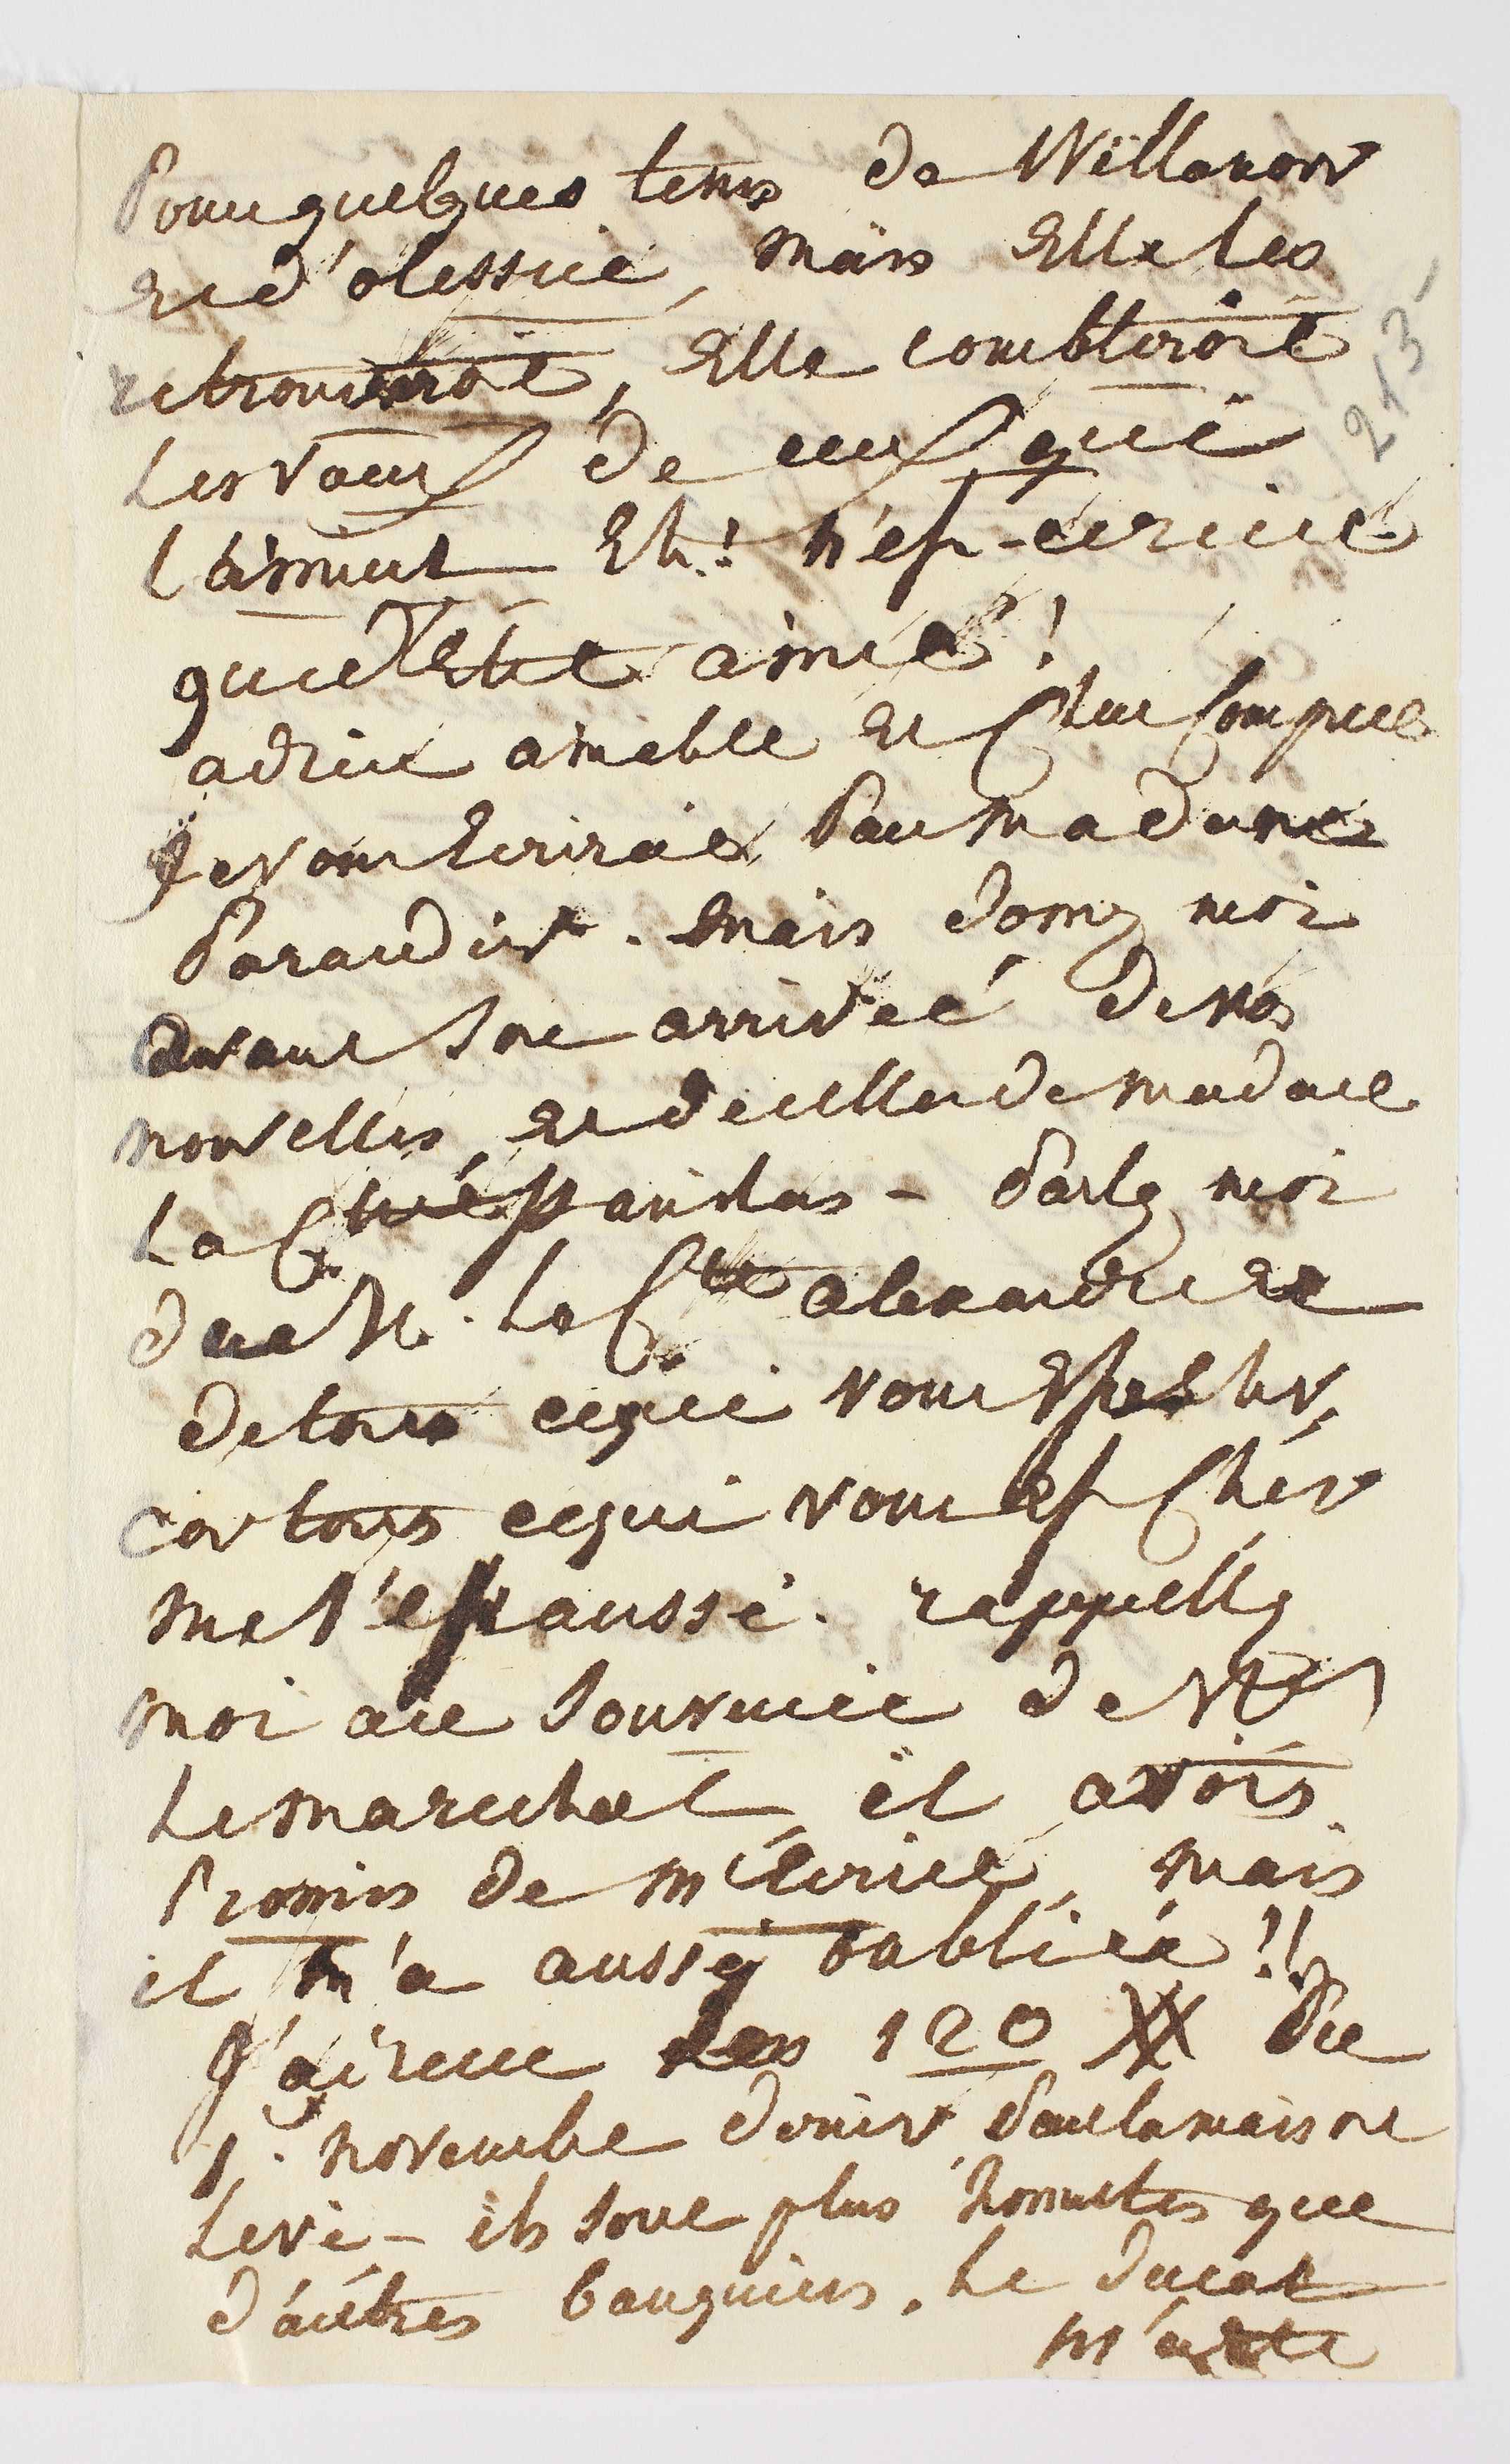 Pour quelques tems de Willanow
et d'olessié, mais Elle les
retrouveroit, Elle combleroit
Les vœux de ceux qui
l'aiment Eh! n'est-ce rien
que d'Etre aimée!
adieu aimable et
Je vous Ecrirai Par Madame
Paraudier. mais donnez moi
avant son arrivée de vos
nouvelles et de celles de madame
La Ctesse Stanislas - Parlez moi
de M. Le Cte alexandre et
de tous ce qui vous Est cher,
car tous ce qui vous est Cher
me l'est aussi. rappellez
moi au souvenir de Mr
Le marechal il avois
Promis de m'Ecrire, mais
il m'a aussy oubliée!!
J'ai recue Les 120 XX du
1. novembre dernier Par la maison
Levi - ils sont plus honnetes que
d'autres banquiers. Le ducat
213